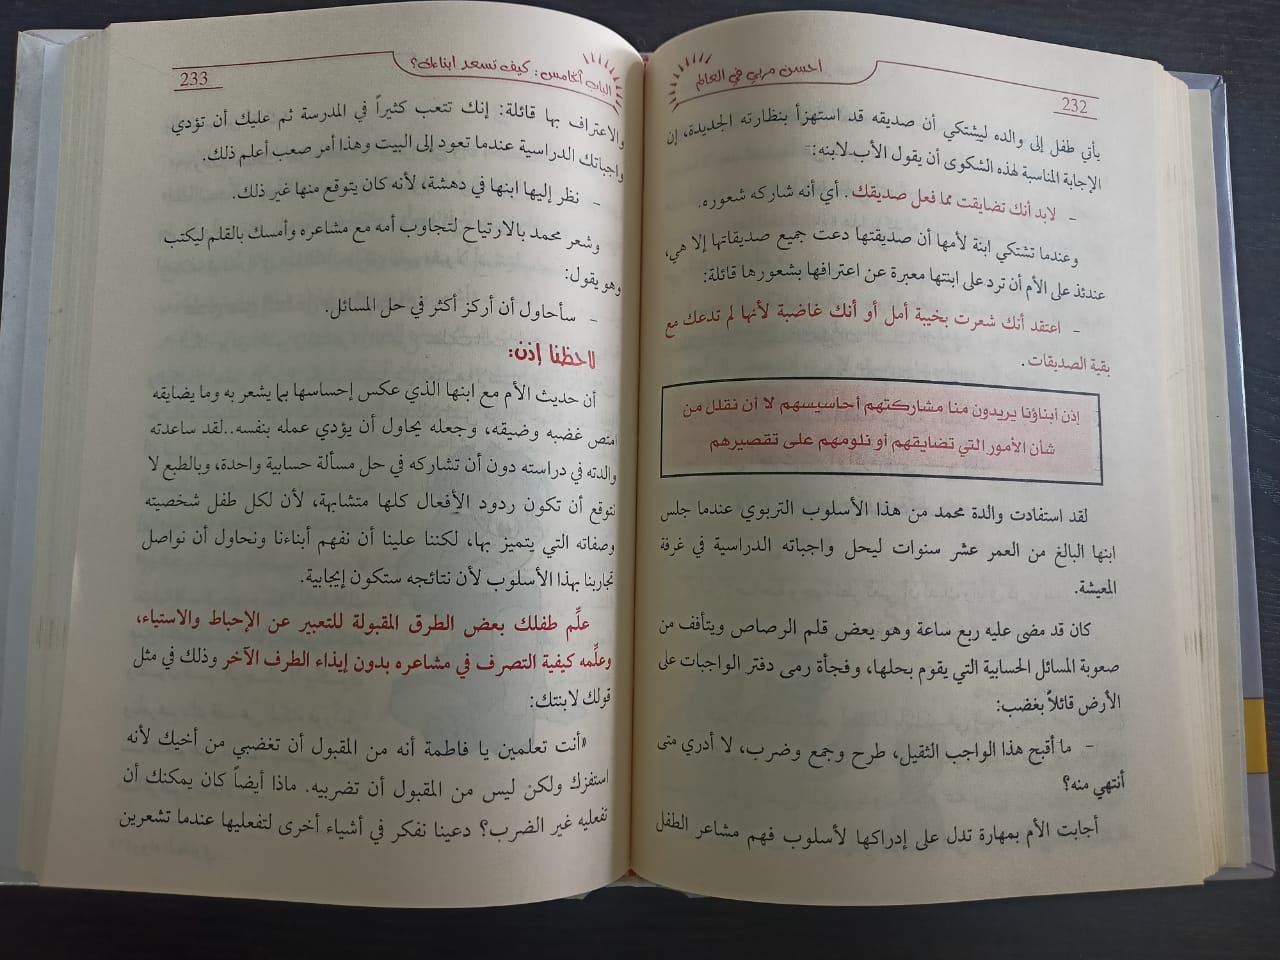 احسن مربي في العالم
232
يأتي طفل إلى والده ليشتكي أن صديقه قد استهزأ بنظارته الجديدة، إن
الإجابة المناسبة لهذه الشكوى أن يقول الأب لابنه:
- لابد أنك تضايقت مما فعل صديقك. أي أنه شاركه شعوره.
وعندما تشتكي ابنة لأمها أن صديقتها دعت جميع صديقاتها إلا هي،
عندئذ على الأم أن ترد على ابنتها معبرة عن اعترافها بشعورها قائلة:
- اعتقد أنك شعرت بخيبة أمل أو أنك غاضبة لأنها لم تدعك مع
بقية الصديقات.
إذن أبناؤنا يريدون منا مشاركتهم أحاسيسهم لا أن نقلل من
شأن الأمور التي تضايقهم أو نلومهم على تقصيرهم
لقد استفادت والدة محمد من هذا الأسلوب التربوي عندما جلس
ابنها البالغ من العمر عشر سنوات ليحل واجباته الدراسية في غرفة
المعيشة.
كان قد مضى عليه ربع ساعة وهو يعض قلم الرصاص ويتأفف من
صعوبة المسائل الحسابية التي يقوم بحلها، وفجأة رمى دفتر الواجبات على
الأرض قائلاً بغضب:
- ما أقبح هذا الواجب الثقيل، طرح وجمع وضرب، لا أدري متى
أنتهي منه؟
أجابت الأم بمهارة تدل على إدراكها لأسلوب فهم مشاعر الطفل
الباب الخامس: كيف تسعد ابناءك؟
233
والاعتراف بها قائلة: إنك تتعب كثيراً في المدرسة ثم عليك أن تؤدي
واجباتك الدراسية عندما تعود إلى البيت وهذا أمر صعب أعلم ذلك.
- نظر إليها ابنها في دهشة، لأنه كان يتوقع منها غير ذلك.
وشعر محمد بالارتياح لتجاوب أمه مع مشاعره وأمسك بالقلم ليكتب
وهو يقول:
- سأحاول أن أركز أكثر في حل المسائل.
لاحظنا إذن:
أن حديث الأم مع ابنها الذي عكس إحساسها بما يشعر به وما يضايقه
امتص غضبه وضيقه، وجعله يحاول أن يؤدي عمله بنفسه..لقد ساعدته
والدته في دراسته دون أن تشاركه في حل مسألة حسابية واحدة، وبالطبع لا
نتوقع أن تكون ردود الأفعال كلها متشابهة، لأن لكل طفل شخصيته
وصفاته التي يتميز بها، لكننا علينا أن نفهم أبناءنا ونحاول أن نواصل
تجاربنا بهذا الأسلوب لأن نتائجه ستكون إيجابية.
علِّم طفلك بعض الطرق المقبولة للتعبير عن الإحباط والاستياء،
وعلِّمه كيفية التصرف في مشاعره بدون إيذاء الطرف الآخر وذلك في مثل
قولك لابنتك:
«أنت تعلمين يا فاطمة أنه من المقبول أن تغضبي من أخيك لأنه
استفزك ولكن ليس من المقبول أن تضربيه. ماذا أيضاً كان يمكنك أن
تفعليه غير الضرب؟ دعينا نفكر في أشياء أخرى لتفعليها عندما تشعرين